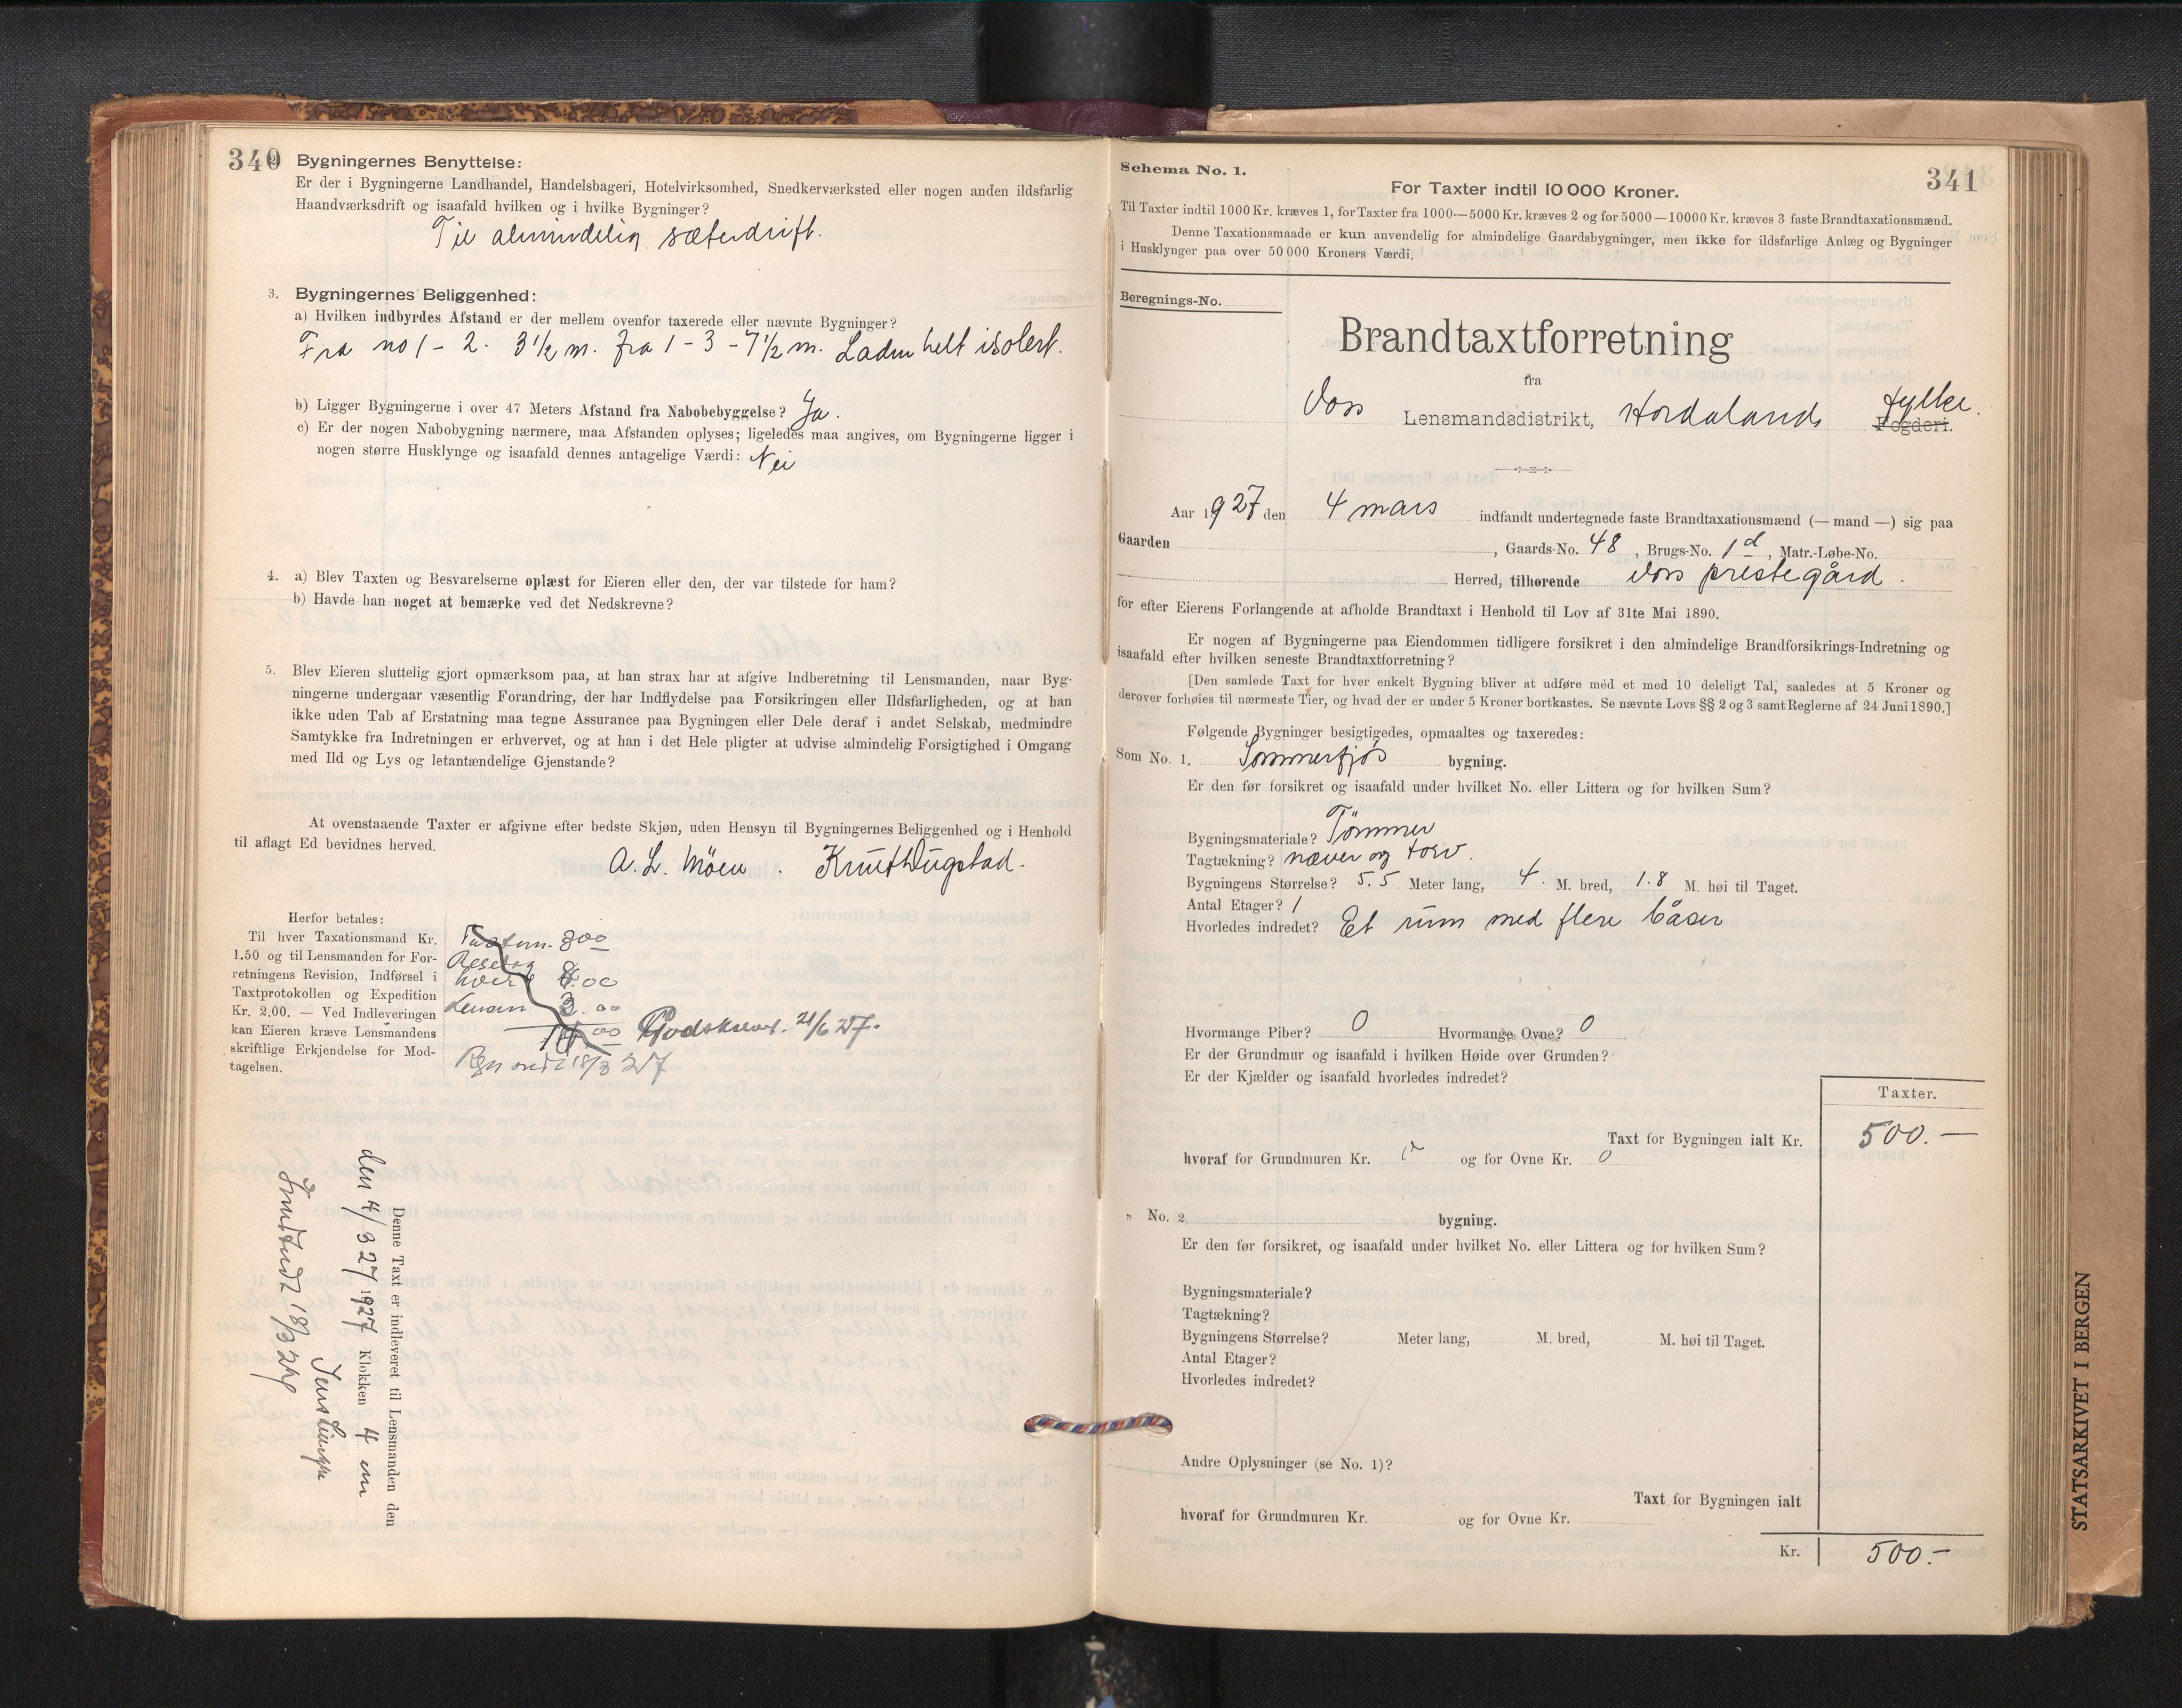 340
2. Bygningernes Benyttelse:
Er der i Bygningerne Landhandel, Handelsbageri, Hotelvirksomhed, Snedkerværksted eller nogen anden ildsfarlig
Haandværksdrift og isaafald hvilken og i hvilke Bygninger?
Til almindelig sæterdrift.
3. Bygningernes Beliggenhed:
a) Hvilken indbyrdes Afstand er der mellem ovenfor taxerede eller nævnte Bygninger?
Fra no 1 - 2. 3 1/2 m. fra 1 - 3 - 7 1/2 m. Laden helt isolert.
b) Ligger Bygningerne i over 47 Meters Afstand fra Nabobebyggelse? Ja.
c) Er der nogen Nabobygning nærmere, maa Afstanden oplyses; ligeledes maa angives, om Bygningerne ligger i
nogen større Husklynge og isaafald dennes antagelige Værdi: Nei
4. a) Blev Taxten og Besvarelserne oplæst for Eieren eller den, der var tilstede for ham?
b) Havde han noget at bemærke ved det Nedskrevne?
5. Blev Eieren sluttelig gjort opmærksom paa, at han strax har at afgive Indberetning til Lensmanden, naar Byg-
ningerne undergaar væsentlig Forandring, der har Indflydelse paa Forsikringen eller Ildsfarligheden, og at han
ikke uden Tab af Erstatning maa tegne Assurance paa Bygningen eller Dele deraf i andet Selskab, medmindre
Samtykke fra Indretningen er erhvervet, og at han i det Hele pligter at udvise almindelig Forsigtighed i Omgang
med Ild og Lys og letantændelige Gjenstande?
At ovenstaaende Taxter er afgivne efter bedste Skjøn, uden Hensyn til Bygningernes Beliggenhed og i Henhold
til aflagt Ed bevidnes herved.
A. L. Möen. Knut Dugstad.
Herfor betales:
Til hver Taxationsmand Kr.
1.50 og til Lensmanden for For-
retningens Revision, Indførsel i
Taxtprotokollen og Expedition
Kr. 2.00. — Ved Indleveringen
kan Eieren kræve Lensmandens
skriftlige Erkjendelse for Mod-
tagelsen.
3 00
00
Lensm 3.00
Godskrevet 21/6 27.
18/3 27
Denne Taxt er indleveret til Lensmanden den
den 4/3 27 1927 Klokken 4 em
18/3 27
341
Schema No. 1.
For Taxter indtil 10 000 Kroner.
Til Taxter indtil 1000 Kr. kræves 1, for Taxter fra 1000—5000 Kr. kræves 2 og for 5000—10000 Kr. kræves 3 faste Brandtaxationsmænd.
Denne Taxationsmaade er kun anvendelig for almindelige Gaardsbygninger, men ikke for ildsfarlige Anlæg og Bygninger
i Husklynger paa over 50 000 Kroners Værdi.
Beregnings-No.
Brandtaxtforretning
fra
Voss Lensmandsdistrikt, Hordalands Fylke.
Fogderi.
Aar 1927 den 4 mars indfandt undertegnede faste Brandtaxationsmænd (— mand —) sig paa
Gaarden , Gaards-No. 48, Brugs-No. 1 d, Matr.-Løbe-No.
Herred, tilhørende Voss prestegård.
for efter Eierens Forlangende at afholde Brandtaxt i Henhold til Lov af 31te Mai 1890.
Er nogen af Bygningerne paa Eiendommen tidligere forsikret i den almindelige Brandforsikrings-Indretning og
isaafald efter hvilken seneste Brandtaxtforretning?
[Den samlede Taxt for hver enkelt Bygning bliver at udføre med et med 10 deleligt Tal, saaledes at 5 Kroner og
derover forhøies til nærmeste Tier, og hvad der er under 5 Kroner bortkastes. Se nævnte Lovs §§ 2 og 3 samt Reglerne af 24 Juni 1890.]
Følgende Bygninger besigtigedes, opmaaltes og taxeredes:
Som No. 1. Sommerfjös bygning.
Er den før forsikret og isaafald under hvilket No. eller Littera og for hvilken Sum?
Bygningsmateriale? Tömmer
Tagtækning? næver og torv.
Bygningens Størrelse? 5.5 Meter lang, 4. M. bred, 1.8 M. høi til Taget.
Antal Etager? 1
Hvorledes indredet? Et rum med flere båser
Hvormange Piber? 0 Hvormange Ovne? 0
Er der Grundmur og isaafald i hvilken Høide over Grunden?
Er der Kjælder og isaafald hvorledes indredet?
Taxter.
Taxt for Bygningen ialt Kr. 500.—
hvoraf for Grundmuren Kr. 0 og for Ovne Kr. 0
„ No. 2 bygning.
Er den før forsikret, og isaafald under hvilket No. eller Littera og for hvilken Sum?
Bygningsmateriale?
Tagtækning?
Bygningens Størrelse? Meter lang, M. bred, M. høi til Taget.
Antal Etager?
Hvorledes indredet?
Andre Oplysninger (se No. 1)?
Taxt for Bygningen ialt
hvoraf for Grundmuren Kr. og for Ovne Kr.
Kr. 500.—
STATSARKIVET I BERGEN